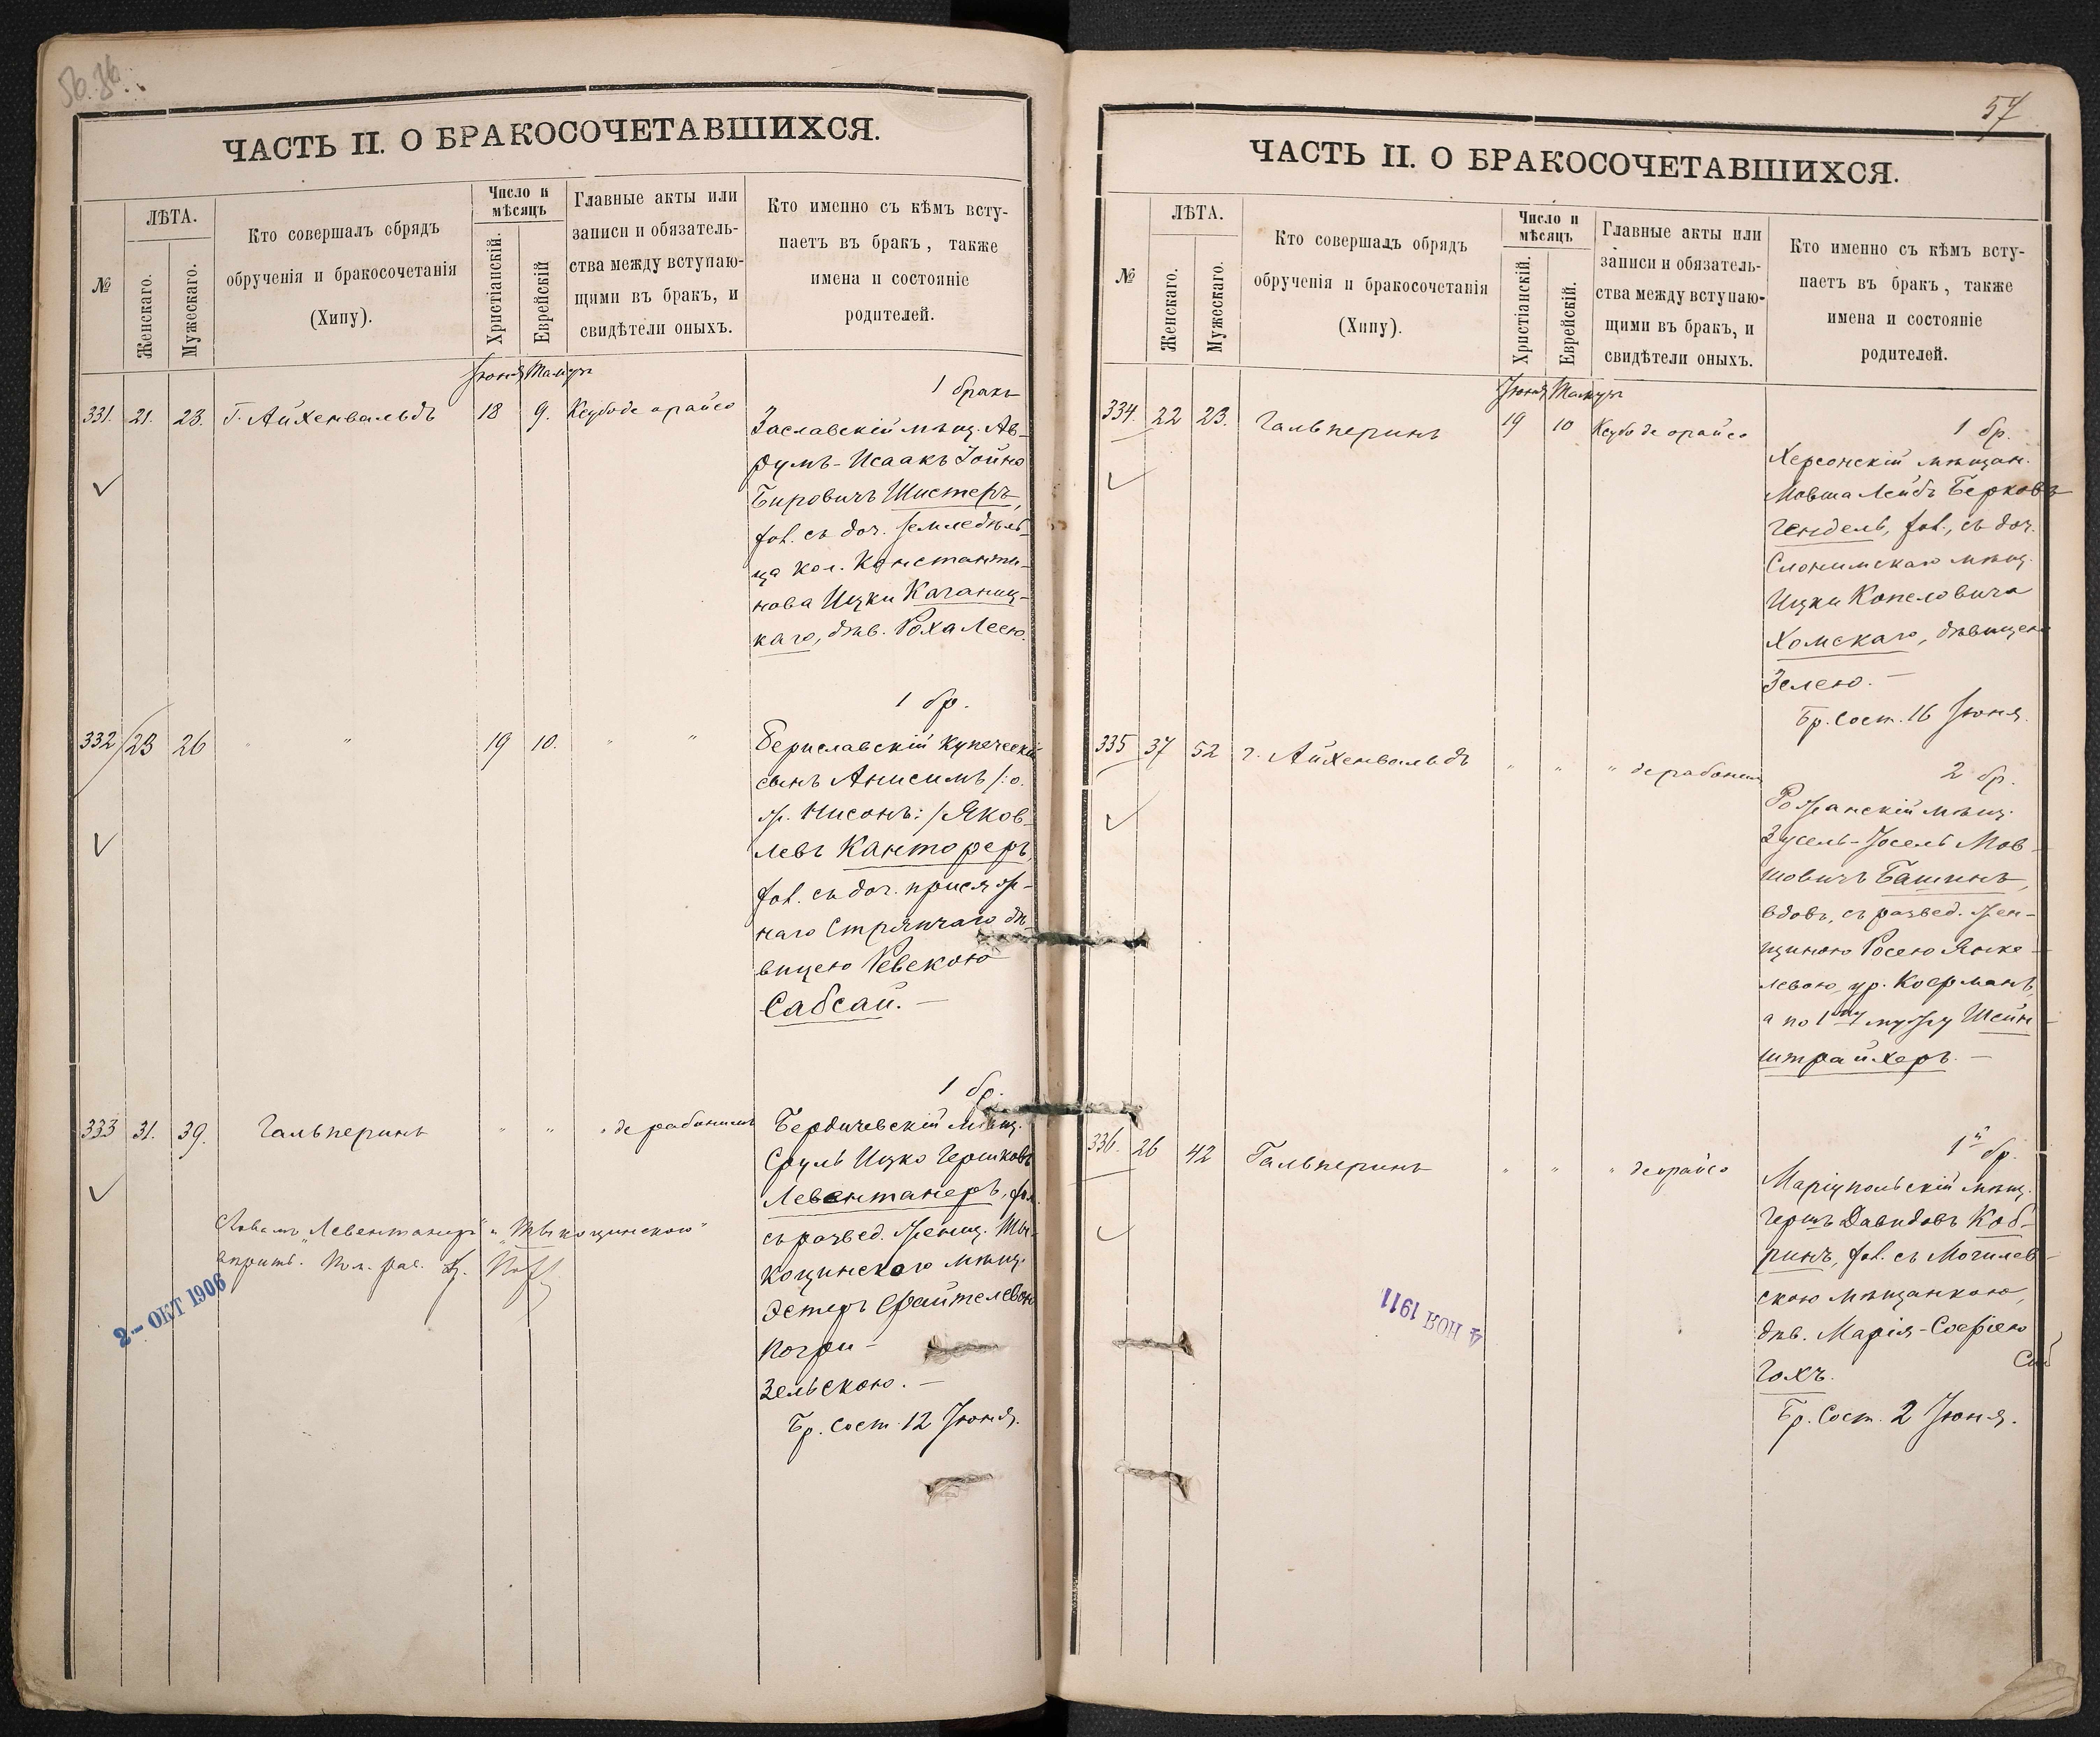 ЧАСТЬ II. О БРАКОСОЧЕТАВШИХСЯ.
№
ЛѢТА.
Женскаго.
Мужескаго.
Кто совершалъ обрядъ
обрученія и бракосочетанія
(Хипу).
Число и
мѣсяцъ
Христіанскій.
Еврейскій
Главные акты или
записи и обязатель-
ства между вступаю-
щими въ бракъ, и
свидѣтели оныхъ.
Кто именно съ кѣмъ всту-
паетъ въ бракъ, также
имена и состояніе
родителей.
Іюня Тамузъ
331. 21. 23. Г. Айхенвальдъ 18 9. Ксубо де орайсо
1 бракъ
Заславскій мѣщ. Ав-
румъ-Исаакъ Іойно
Бировичъ Шистеръ,
хол. съ доч. земледѣль-
ца кол. Константи-
нова Ицки Каганиц-
каго, дѣв. Роха Леею.
332 23 26 " 19 10. " "
1 бр.
Бериславскій купеческій
сынъ Анисимъ /:о.
ж. Нисонъ:/ Яков-
левъ Кантореръ,
хол. съ доч. присяж-
наго стряпчаго дѣ-
вицею Ревекою
Сабсай. —
333 31. 39. Гальперинъ " " " де рабонимъ
1 бр.
Бердичевскій мѣщ.
Сруль Ицко Гершковъ
Левентанеръ, хол.
съ развед. женщ. Ты-
коцинскаго мѣщ.
Эстеръ Файтелевою
Погри-
зельскою. —
Бр. сост. 12 Іюня.
Словамъ "Левентанеръ" и "Тыкоцинскою"
2 - ОКТ 1906
57
ЧАСТЬ II. О БРАКОСОЧЕТАВШИХСЯ.
№
ЛѢТА.
Женскаго.
Мужескаго.
Кто совершалъ обрядъ
обрученія и бракосочетанія
(Хипу).
Число и
мѣсяцъ
Христіанскій.
Еврейскій.
Главные акты или
записи и обязатель-
ства между вступаю-
щими въ бракъ, и
свидѣтели оныхъ.
Кто именно съ кѣмъ всту-
паетъ въ бракъ, также
имена и состояніе
родителей.
Іюня Тамузъ
334. 22 23. Гальперинъ 19 10 Ксубо де орайсо
1 бр.
Херсонскій мѣщан.
Мовша Лейбъ Берковъ
Гендель, хол., съ доч.
Слонимскаго мѣщ.
Ицки Копеловича
Хомскаго, дѣвицею
Зелею. —
Бр. сост. 16 Іюня.
335 37 52 г. Айхенвальдъ " " " де рабонимъ
2 бр.
Рожанскій мѣщ.
Зусель-Іосель Мов-
шовичъ Башинъ,
вдовъ, съ развед. жен-
щиною Росею Янке-
левою, ур. Кофманъ,
а по 1му мужу Шейн-
штрайхеръ. —
336. 26 42 Гальперинъ " " " де орайсо
1й бр.
Маріупольскій мѣщ.
Гершъ Давидовъ Коб-
ринъ, хол. съ Могилев-
скою мѣщанкою,
дѣв. Марія-Софіею
Гохъ.
Бр. сост. 2 Іюня.
4 НОЯ 1911